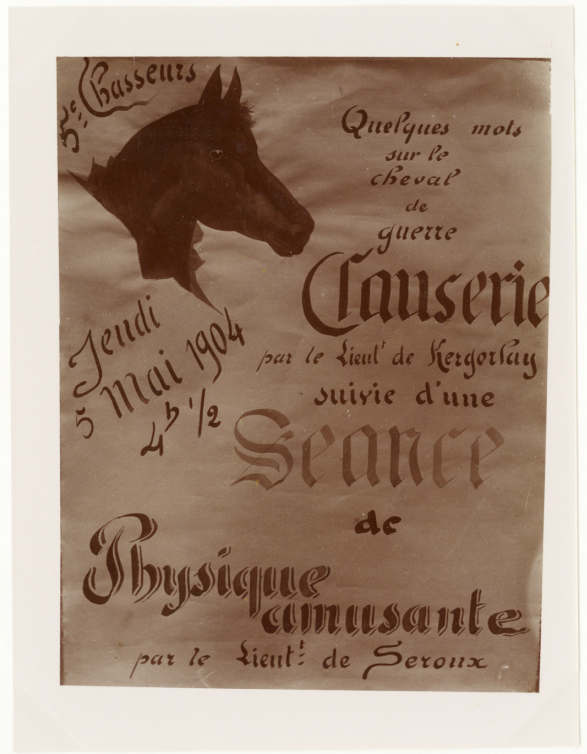 5me Chasseurs
Quelques mots
sur le
cheval
de
guerre
Causerie
par le Lieutt de Kergorlay
suivie d'une
Séance
de
Physique
amusante
par le Lieutt de Seroux
Jeudi
5 Mai 1904
4h 1/2